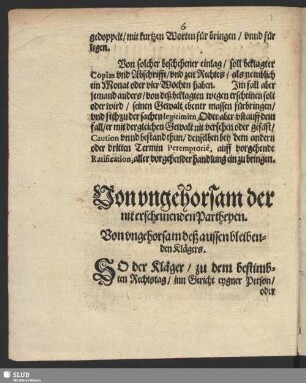 6
gedoppelt / mit kurtzen Worten für bringen / vnnd für
ligen.
Von solcher beschehener einlag / soll beklagter
Copiam vnd Abschrifft / vnd zeit Rechtes / als nemblich
ein Monat oder vier Wochen haben. Im fall aber
jemand anders / von deß beklagten wegen erscheinen soll
oder wird / seinen Gewalt ebener massen fürbringen /
vnd sich zu der sachen legitimirn, Oder aber vff auff dem
fall / er mit dergleichen Gewalt nit versehen oder gefast /
Caution vnnd bestand thun / denselben bey dem andern
oder dritten Termin Peremptoriè, auff vorgehende
Ratification, aller vorgehender handlung ein zu bringen.
Von vngehorsam der
nit erscheinenden Partheyen.
Von vngehorsam deß aussen bleiben-
den Klägers.
SO der Kläger / zu dem bestimb-
ten Rechtstag / inn Gericht eygner Person /
oder
SLUB